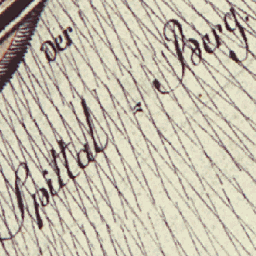 Der
Spittal = Berg.